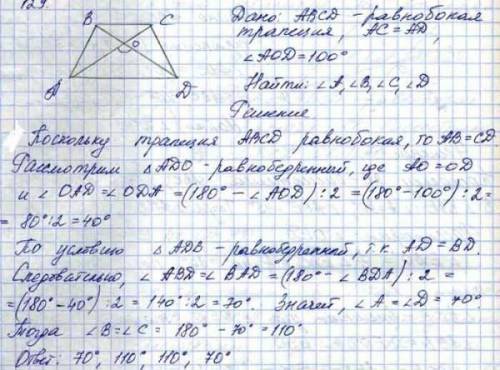 129
B C
O
A D
Дано: ABCD - равнобокая
трапеция, AC = AD,
∠AOD = 100°
Найти: ∠A, ∠B, ∠C, ∠D
Решение
Поскольку трапеция ABCD равнобокая, то AB = CD.
Рассмотрим △ADO - равнобедренный, где AO = OD
и ∠OAD = ∠ODA = (180° - ∠AOD) : 2 = (180° - 100°) : 2 =
= 80° : 2 = 40°
По условию △ADB - равнобедренный, т.к. AD = BD.
Следовательно, ∠ABD = ∠BAD = (180° - ∠BDA) : 2 =
= (180° - 40°) : 2 = 140° : 2 = 70°. Значит, ∠A = ∠D = 70°.
Тогда ∠B = ∠C = 180° - 70° = 110°
Ответ: 70°, 110°, 110°, 70°